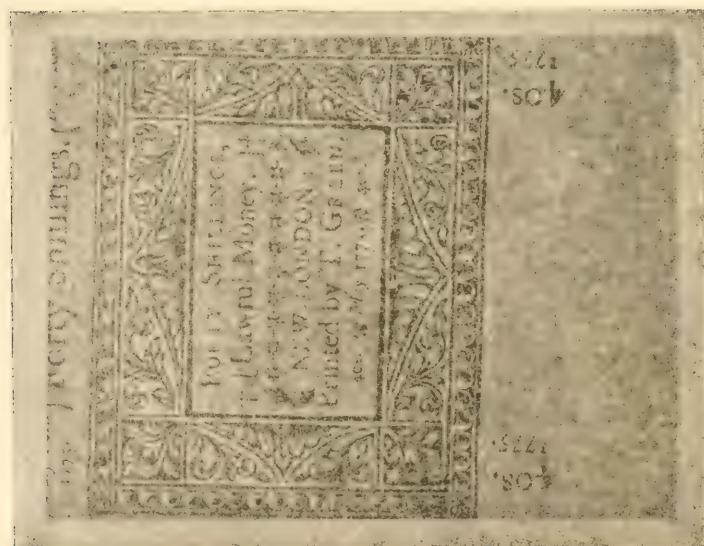 Forty Shillings.
FORTY SHILLINGS,
Lawful Money.
NEW-LONDON:
Printed by T. GREEN,
40s. May 177
40s.
1775.
40s.
1775.